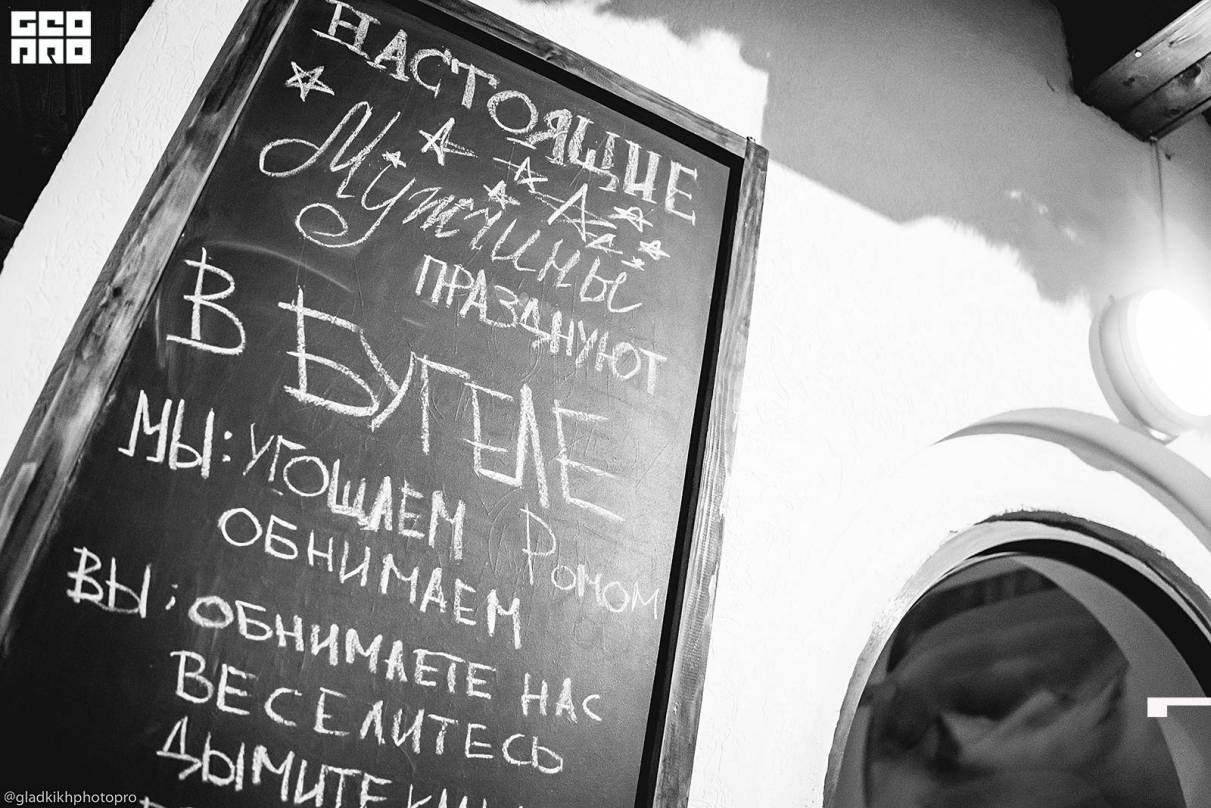 GEO
PRO
НАСТОЯЩИЕ
Мужчины
ПРАЗДНУЮТ
В БУГЕЛЕ
МЫ: УГОЩАЕМ РОМОМ
ОБНИМАЕМ
ВЫ: ОБНИМАЕТЕ НАС
ВЕСЕЛИТЕСЬ
ДЫМИТЕ
@gladkikhphotopro